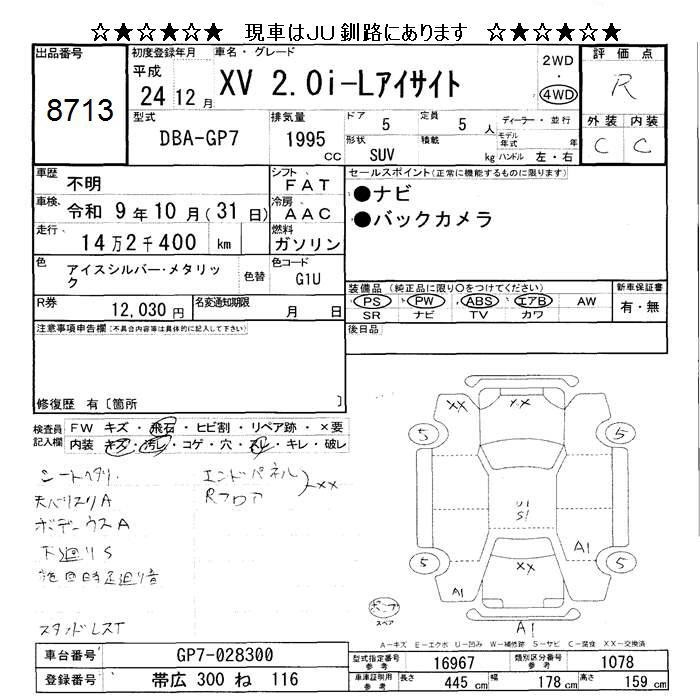 ☆★☆★☆★ 現車はJU釧路にあります ☆★☆★☆★
出品番号
8713
初度登録年月
平成
24 12 月
車名・グレード
XV 2.0i-Lアイサイト
2WD
・
4WD
評価点
R
外装 内装
C C
型式
DBA-GP7
排気量
1995
cc
ドア 5
定員 5 人
形状
SUV
積載
kg
ディーラー・並行
モデル年式 年
ハンドル 左・右
車歴
不明
シフト
FAT
車検
令和 9 年 10 月 ( 31 日)
冷房
AAC
走行
14 万 2 千 400 km
燃料
ガソリン
色
アイスシルバー・メタリック
色替
色コード
G1U
R券
12,030 円
名変通知期限
月 日
セールスポイント(正常に機能するものに限ります)
●ナビ
●バックカメラ
装備品 (純正品に限り〇をつけてください)
PS PW ABS エアB AW
SR ナビ TV カワ
新車保証書
有・無
後日品
注意事項申告欄(不具合内容等は具体的に記入して下さい)
修復歴 有〔箇所 〕
検査員記入欄
FW キズ・飛石・ヒビ割・リペア跡・×要
内装 キズ・汚レ・コゲ・穴・スレ・キレ・破レ
シートヘタリ
エンドパネル
Rフロア
XX
天バリスリA
ボデーウスA
下廻りS
スタッドレスT
XX
XX
5
5
U1
S1
XX
5
5
A1
A1
A1
スペア
A-キズ E-エクボ U-凹み W-補修跡 S-サビ C-腐食 XX-交換済
車台番号
GP7-028300
登録番号
帯広 300 ね 116
型式指定番号
参考
16967
類別区分番号
参考
1078
車庫証明用
参考
長さ 445 cm
幅 178 cm
高さ 159 cm